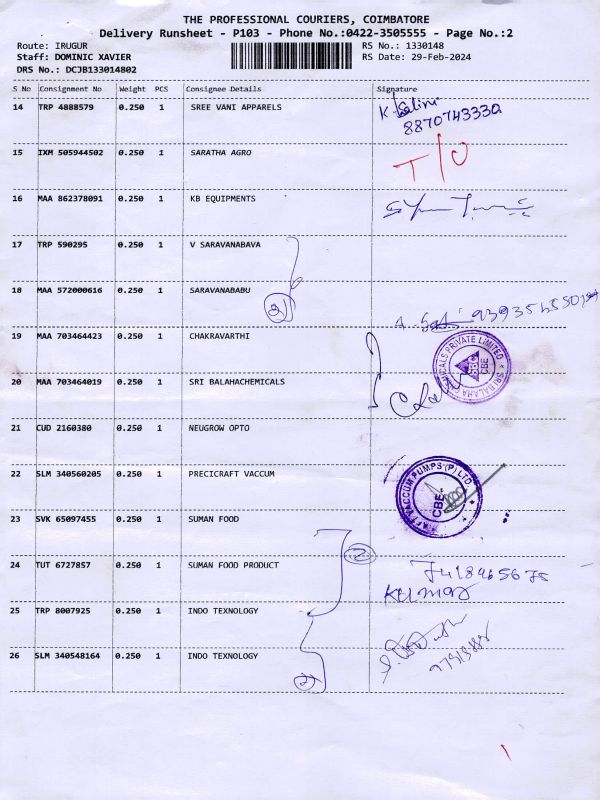 THE PROFESSIONAL COURIERS, COIMBATORE
Delivery Runsheet - P103 - Phone No.:0422-3505555 - Page No.:2
Route: IRUGUR RS No.: 1330148
Staff: DOMINIC XAVIER RS Date: 29-Feb-2024
DRS No.: DCJB133014802
S No Consignment No Weight PCS Consignee Details Signature
14 TRP 4888579 0.250 1 SREE VANI APPARELS K. Selini
8870743330
15 IXM 505944502 0.250 1 SARATHA AGRO T/O
16 MAA 862378091 0.250 1 KB EQUIPMENTS
17 TRP 590295 0.250 1 V SARAVANABAVA
18 MAA 572000616 0.250 1 SARAVANABABU 2
19 MAA 703464423 0.250 1 CHAKRAVARTHI
SRI BALAHA CHEMICALS PRIVATE LIMITED
CBE
20 MAA 703464019 0.250 1 SRI BALAHACHEMICALS
21 CUD 2160380 0.250 1 NEUGROW OPTO
22 SLM 340560205 0.250 1 PRECICRAFT VACCUM
VACCUM PUMPS (P) LTD.
CBE.
23 SVK 65097455 0.250 1 SUMAN FOOD
2
24 TUT 6727857 0.250 1 SUMAN FOOD PRODUCT
Kumar
25 TRP 8007925 0.250 1 INDO TEXNOLOGY
26 SLM 340548164 0.250 1 INDO TEXNOLOGY
2